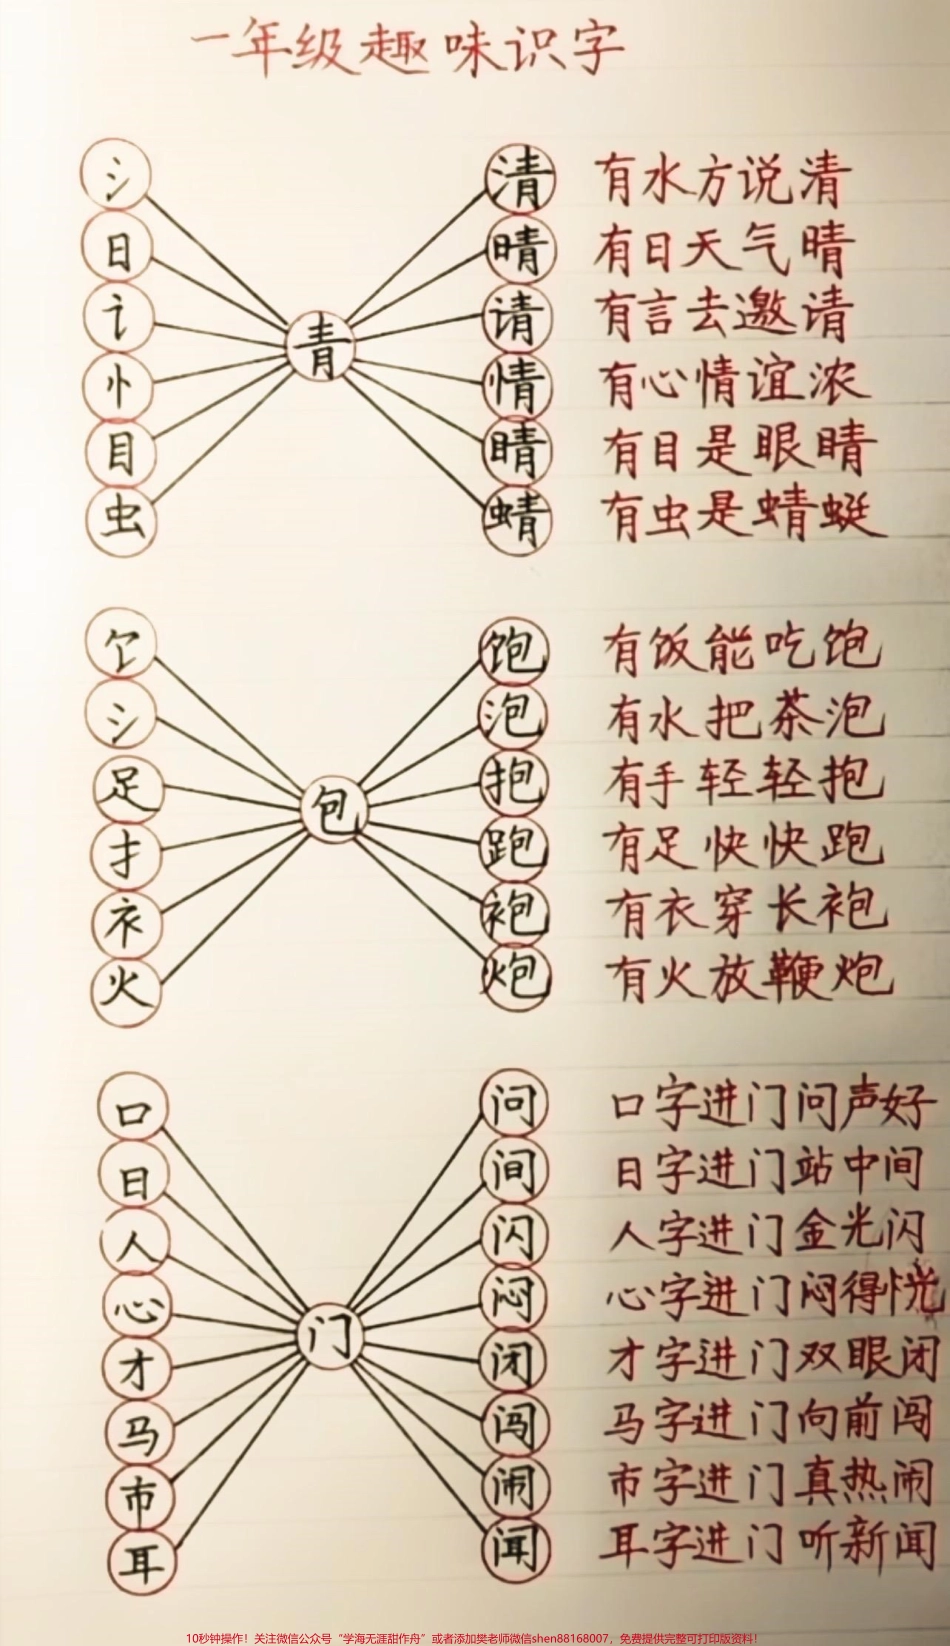 一年级趣味识字
氵 清 有水方说清
日 晴 有日天气晴
讠 请 有言去邀请
青
忄 情 有心情谊浓
目 睛 有目是眼睛
虫 蜻 有虫是蜻蜓
饣 饱 有饭能吃饱
氵 泡 有水把茶泡
足 抱 有手轻轻抱
包
扌 跑 有足快快跑
衤 袍 有衣穿长袍
火 炮 有火放鞭炮
口 问 口字进门问声好
日 间 日字进门站中间
人 闪 人字进门金光闪
心 闷 心字进门闷得慌
门
才 闭 才字进门双眼闭
马 闯 马字进门向前闯
市 闹 市字进门真热闹
耳 闻 耳字进门听新闻
10秒钟操作！关注微信公众号“学海无涯甜作舟”或者添加樊老师微信shen88168007，免费提供完整可打印版资料！